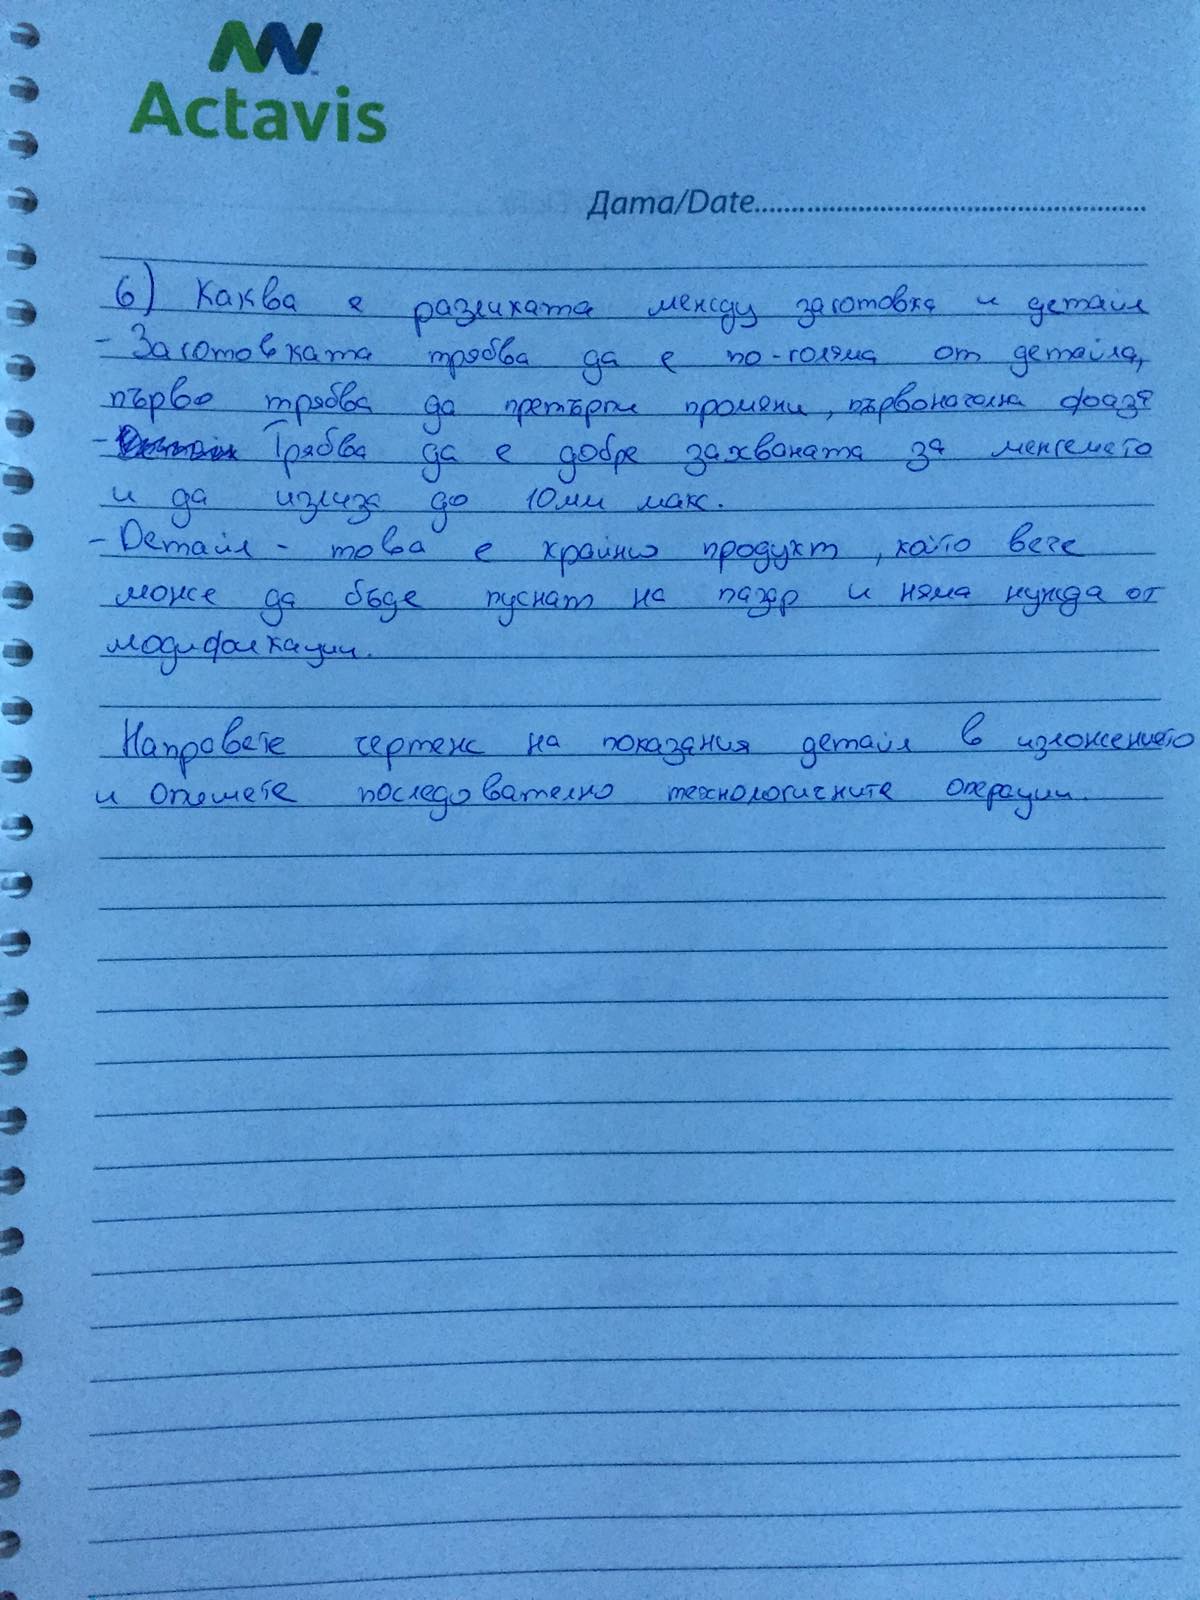 Actavis
Дата/Date
6) Каква е разликата между заготовка и детайл
- Заготовката трябва да е по-голяма от детайла,
първо трябва да претърпи промени, първоначална фаза
- Трябва да е добре захваната за менгемето
и да излиза до 10мм макс.
- Детайл - това е крайно продукт, който вече
може да бъде пуснат на пазар и няма нужда от
модификации.
Направете чертеж на показания детайл в изложението
и опишете последователно технологичните операции.